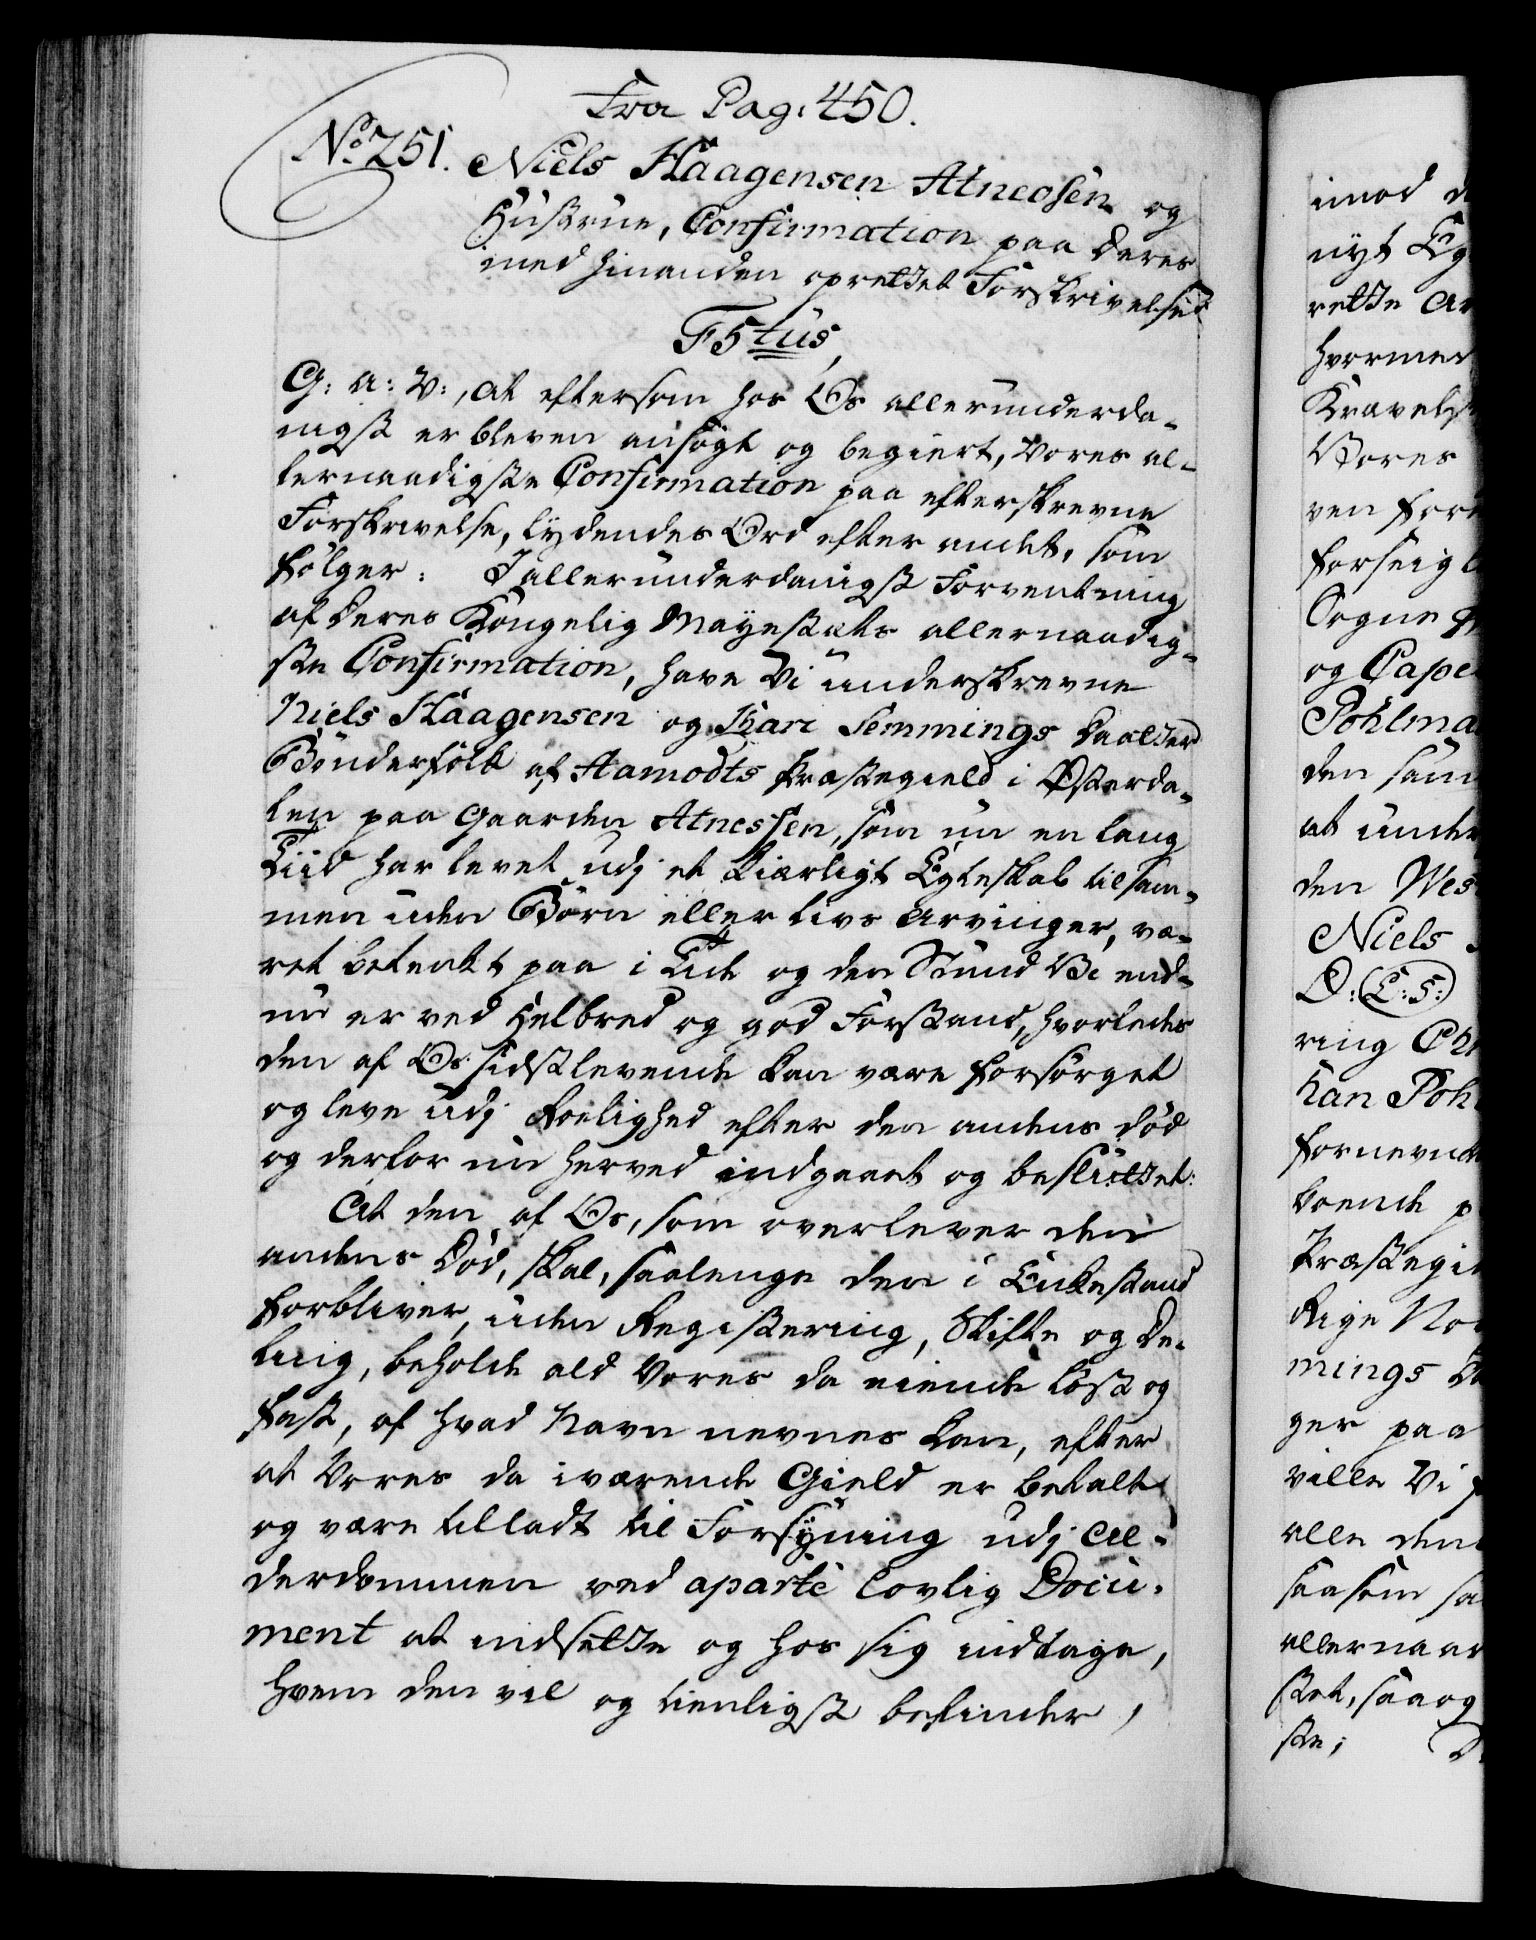 Fra Pag: 450.
No. 251. Niels Haagensen Atneosen og
Hustrue, Confirmation paa deres
med hinanden oprettet Forskrivelse
F5tus,
G: a: V:, at eftersom hos Os allerunderda-
nigst er bleven ansøgt og begiert, Vores al-
lernaadigste Confirmation paa efterskrevne
Forskrivelse, lydendes Ord efter andet, som
følger: I allerunderdanigst Forventning
af deres Kongelig Mayestæts allernaadig-
ste Confirmation, have Vi underskrevne
Niels Haagensen og Kari Semmings Daatter
Bønderfolk af Aamodts Præstegield i Østerda-
len paa Gaarden Atnessen, som nu en lang
Tiid har levet udj et kiærligt Egteskab tilsam-
men uden Børn eller livs Arvinger, væ-
ret betenkt paa i Tide og den Stund Vi end-
nu er ved Helbred og god Forstand, hvorledes
den af Os sidstlevende kan være forsørget
og leve udj Roelighed efter den andens død
og derfor nu herved indgaaet og besluttet:
At den af Os, som overlever den
andens Død, skal, saalenge den i Enkestand
forbliver, uden Registering, Skifte og De-
ling, beholde ald Vores da eiende løst og
fast, af hvad Navn nevnes kan, efter
at Vores da iværende Gield er betalt
og være tilladt til Forsyning udj Al-
derdommen ved aparte lovlig Docu-
ment at indsette og hos sig indtage,
hvem den vil og tienligst befinder,
imod
nyt
rette
hvormed
Vores
ven
Sogne
og
den
at
den
Niels
D: (L:S:)
ring
boende
Rige
mings
ger paa
ville Vi
alle
saasom